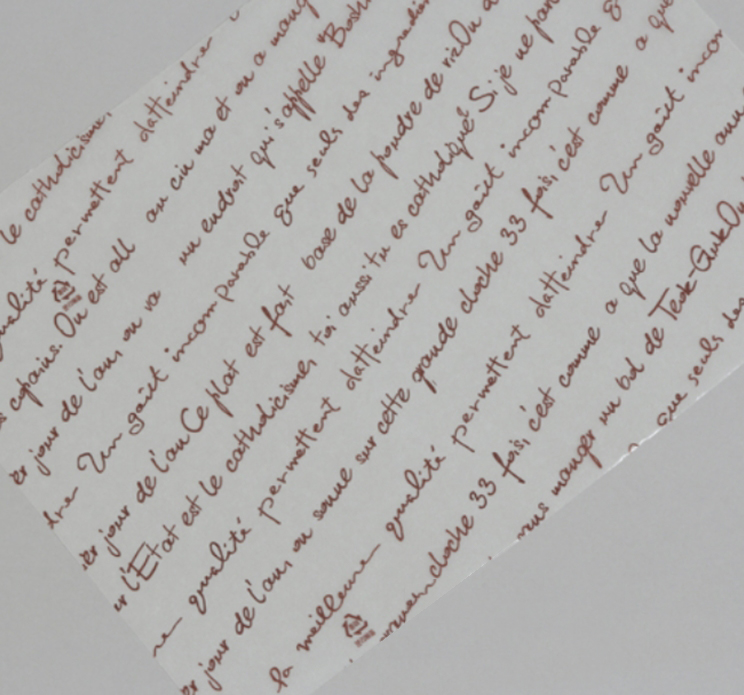 le catholicisme,
qualité permettent d'atteindre
copains. On est all au ciu ma et on a mang
er jour de l'an, on va un endroit qui s'appelle "Bosh
dre Un goût incomparable que seuls des ingrédien
er jour de l'an Ce plat est fait base de la poudre de riz On a
er l'État est le catholicisme, toi aussi tu es catholique? Si je ne par
ne qualité permettent d'atteindre Un goût incomparable g
er jour de l'an, on sonne sur cette grande cloche 33 fois, c'est comme a que
la meilleure qualité permettent d'atteindre Un goût incom
cloche 33 fois, c'est comme a que la nouvelle ann
ous manger un bol de Teok-Guk On
que seuls des